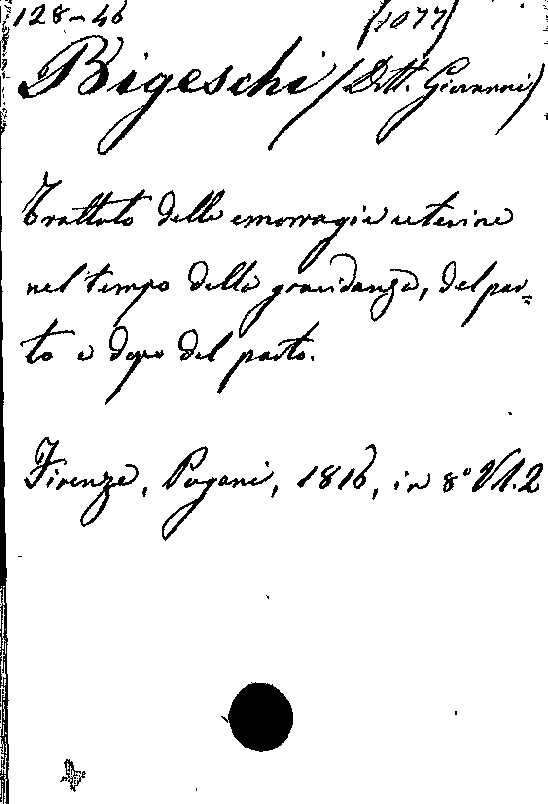 128-46 (1077)
Bigeschi (Dott. Giovanni)
Trattato delle emorragie uterine
nel tempo della gravidanza, del par-
to e dopo del parto.
Firenze, Pagani, 1816, in 8° Vl. 2